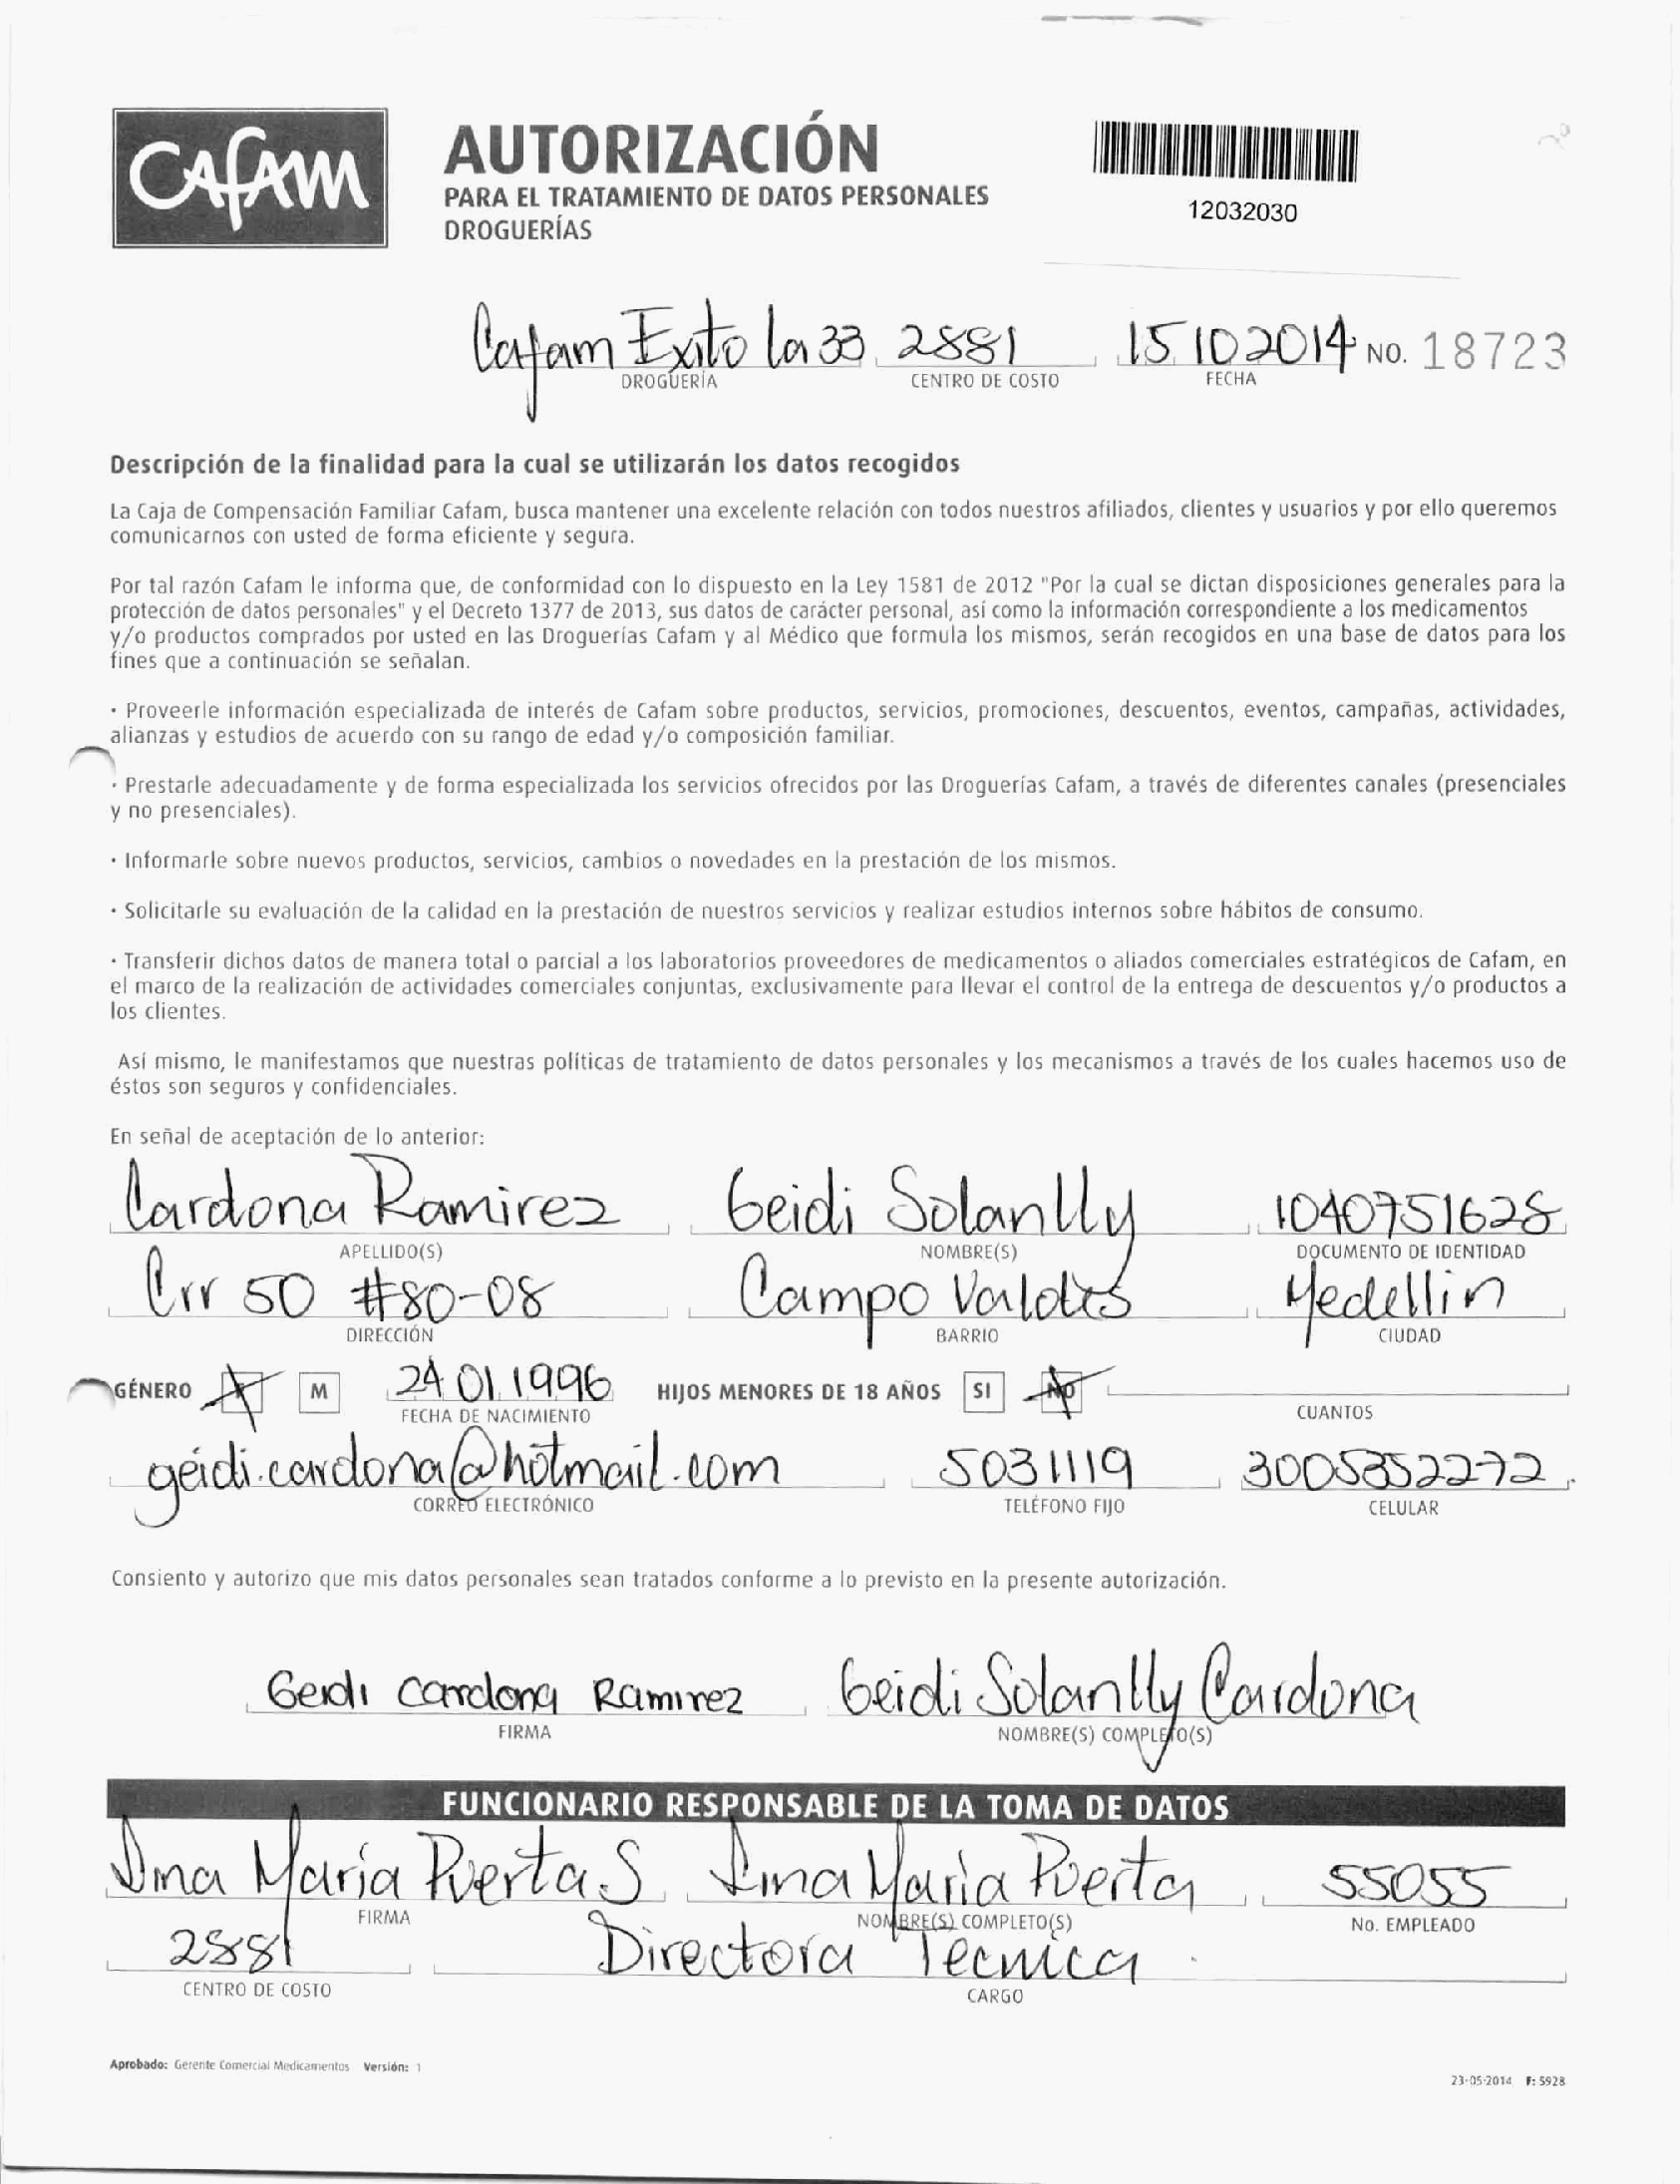 Cafam
AUTORIZACIÓN
PARA EL TRATAMIENTO DE DATOS PERSONALES
DROGUERÍAS
12032030
Cafam Exito la 33 2881 15 10 2014 No. 18723
DROGUERÍA CENTRO DE COSTO FECHA
Descripción de la finalidad para la cual se utilizarán los datos recogidos
La Caja de Compensación Familiar Cafam, busca mantener una excelente relación con todos nuestros afiliados, clientes y usuarios y por ello queremos
comunicarnos con usted de forma eficiente y segura.
Por tal razón Cafam le informa que, de conformidad con lo dispuesto en la Ley 1581 de 2012 "Por la cual se dictan disposiciones generales para la
protección de datos personales" y el Decreto 1377 de 2013, sus datos de carácter personal, así como la información correspondiente a los medicamentos
y/o productos comprados por usted en las Droguerías Cafam y al Médico que formula los mismos, serán recogidos en una base de datos para los
fines que a continuación se señalan.
· Proveerle información especializada de interés de Cafam sobre productos, servicios, promociones, descuentos, eventos, campañas, actividades,
alianzas y estudios de acuerdo con su rango de edad y/o composición familiar.
· Prestarle adecuadamente y de forma especializada los servicios ofrecidos por las Droguerías Cafam, a través de diferentes canales (presenciales
y no presenciales).
· Informarle sobre nuevos productos, servicios, cambios o novedades en la prestación de los mismos.
· Solicitarle su evaluación de la calidad en la prestación de nuestros servicios y realizar estudios internos sobre hábitos de consumo.
· Transferir dichos datos de manera total o parcial a los laboratorios proveedores de medicamentos o aliados comerciales estratégicos de Cafam, en
el marco de la realización de actividades comerciales conjuntas, exclusivamente para llevar el control de la entrega de descuentos y/o productos a
los clientes.
Así mismo, le manifestamos que nuestras políticas de tratamiento de datos personales y los mecanismos a través de los cuales hacemos uso de
éstos son seguros y confidenciales.
En señal de aceptación de lo anterior:
Cardona Ramirez Geidi Solanlly 1040751628
APELLIDO(S) NOMBRE(S) DOCUMENTO DE IDENTIDAD
Crr 50 #80-08 Campo Valdes Medellin
DIRECCIÓN BARRIO CIUDAD
GÉNERO M 24 01 1996 HIJOS MENORES DE 18 AÑOS SI NO
FECHA DE NACIMIENTO CUANTOS
geidi.cardona@hotmail.com 5031119 3005352272
CORREO ELECTRÓNICO TELÉFONO FIJO CELULAR
Consiento y autorizo que mis datos personales sean tratados conforme a lo previsto en la presente autorización.
Geidi Cardona Ramirez Geidi Solanlly Cardona
FIRMA NOMBRE(S) COMPLETO(S)
FUNCIONARIO RESPONSABLE DE LA TOMA DE DATOS
Ana Maria Puerta S Ana Maria Puerta 55055
FIRMA NOMBRE(S) COMPLETO(S) No. EMPLEADO
2881 Directora Tecnica
CENTRO DE COSTO CARGO
Aprobado: Gerente Comercial Medicamentos Versión: 1
23-05-2014 F: 5928